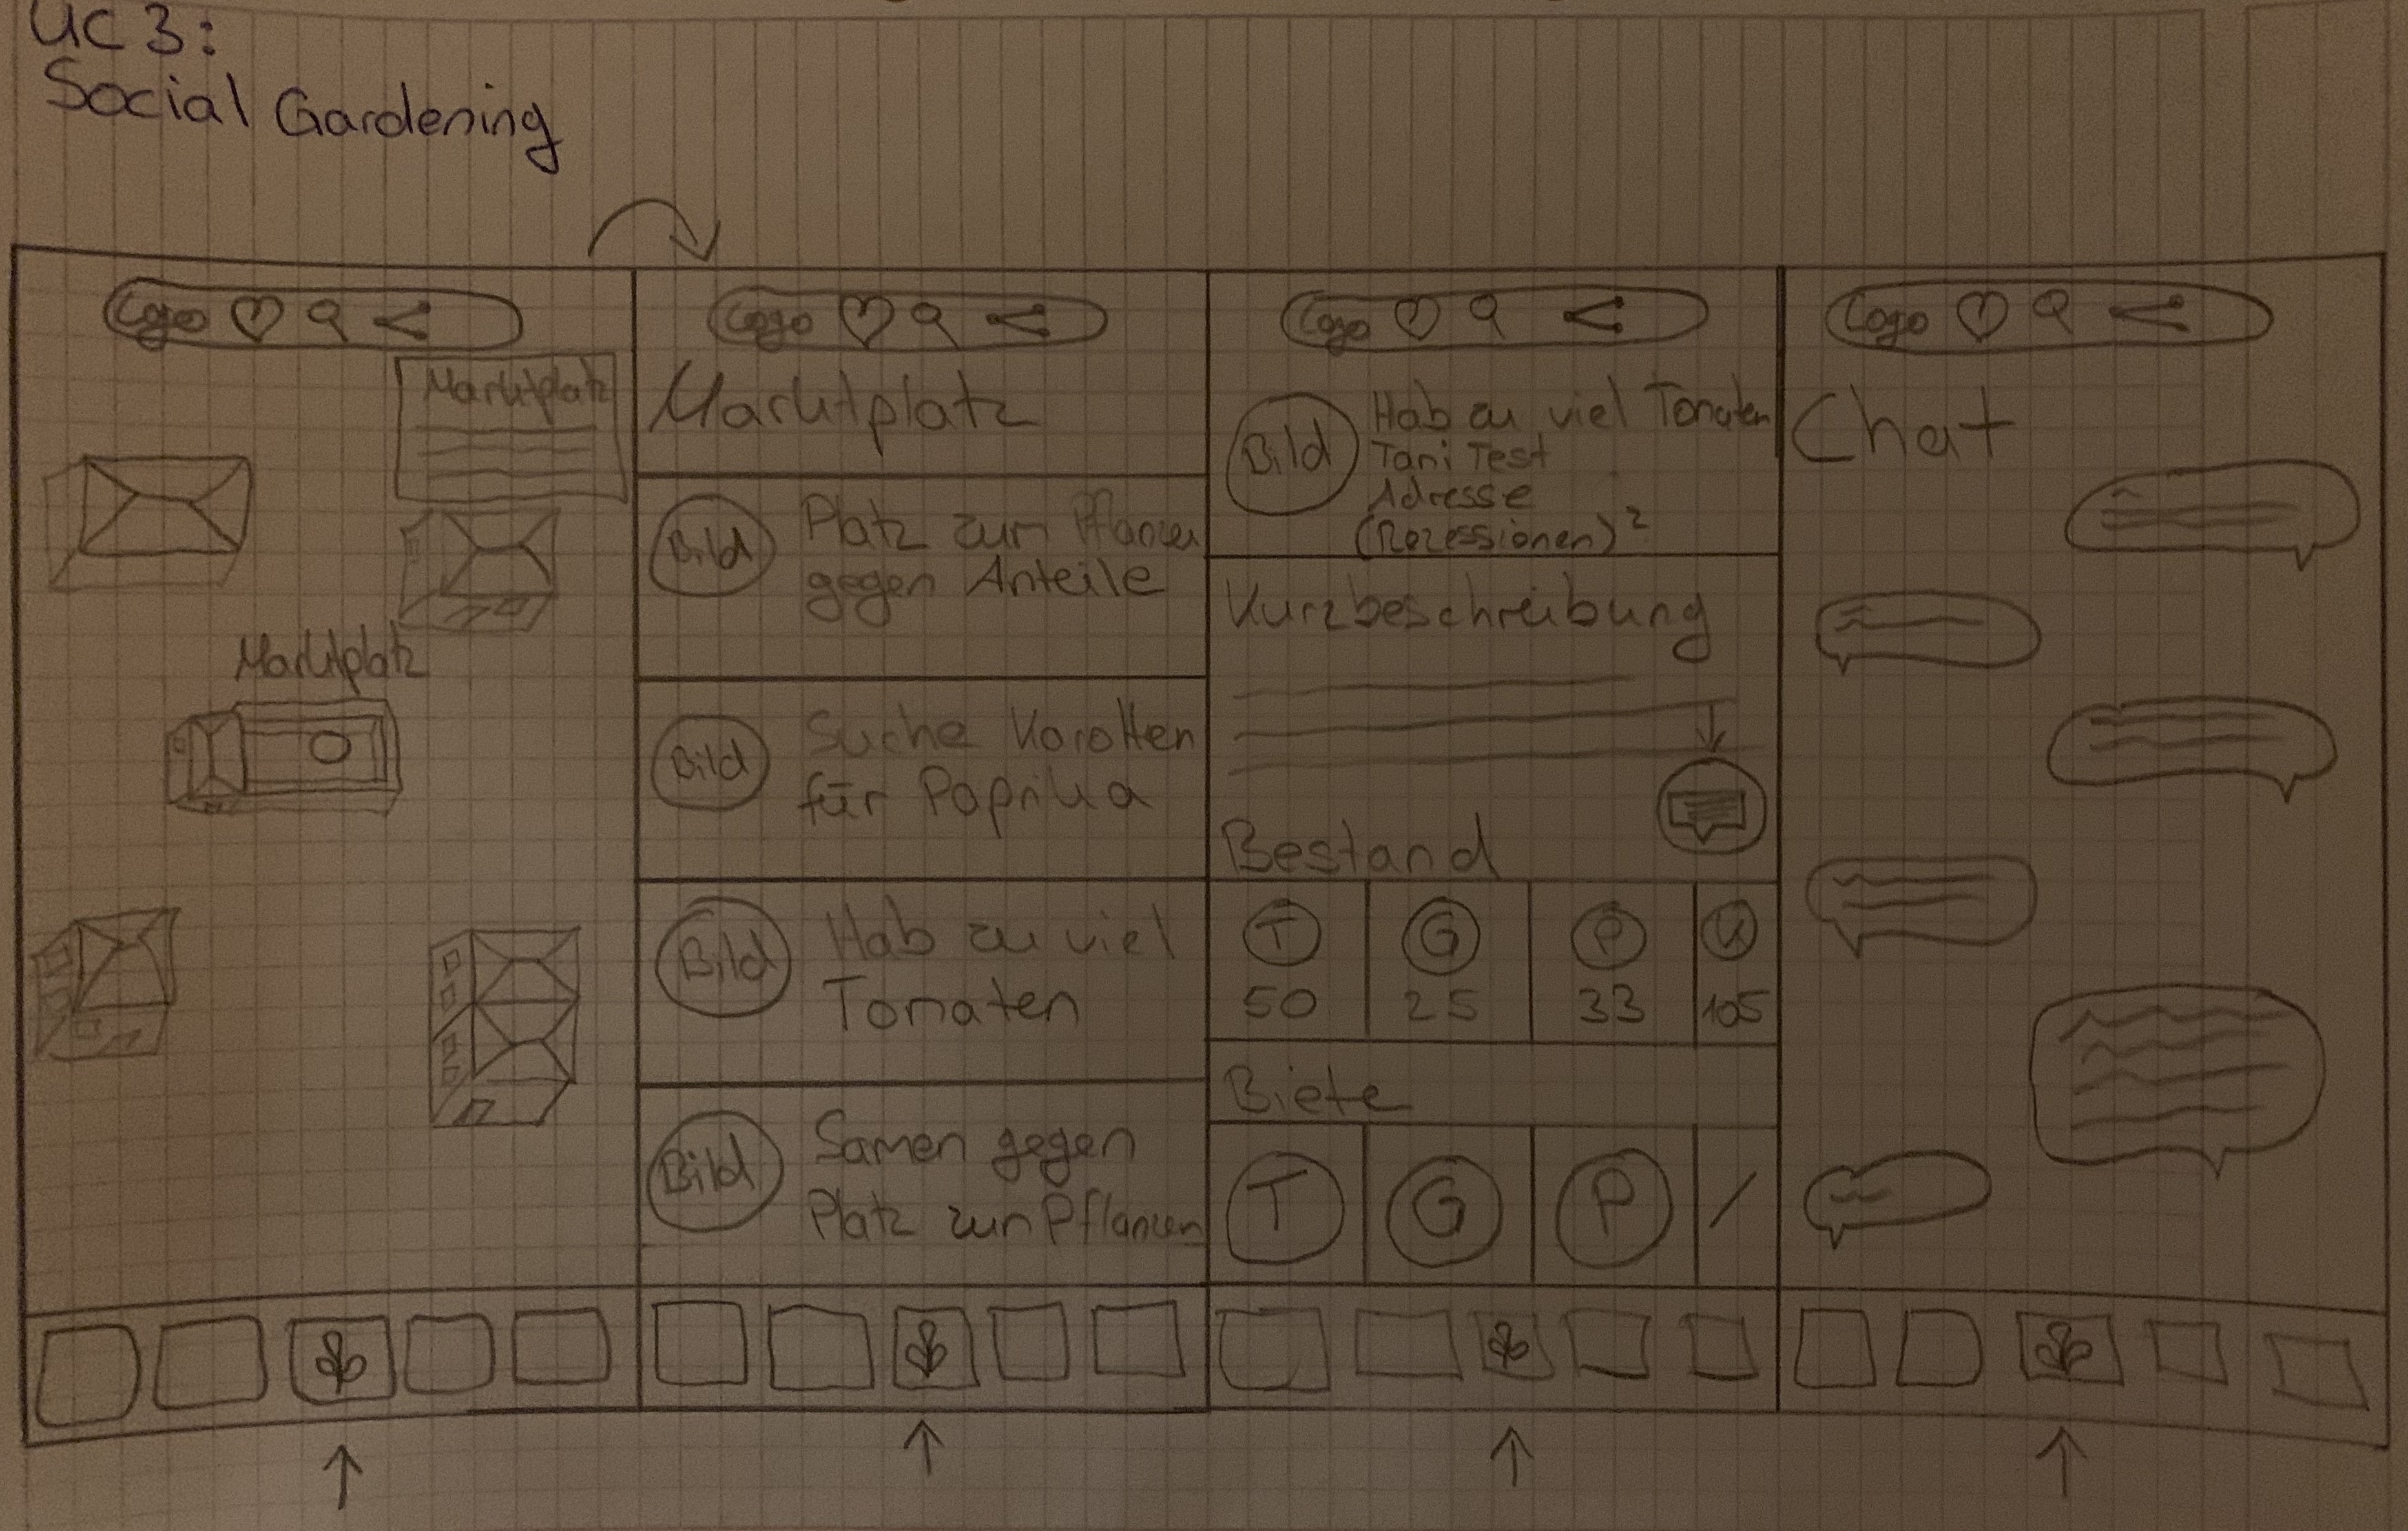 UC 3:
Social Gardening
Logo
Marktplatz
Marktplatz
Logo
Marktplatz
Bild
Platz zum Pflanzen
gegen Anteile
Bild
Suche Karotten
für Paprika
Bild
Hab zu viel
Tomaten
Bild
Samen gegen
Platz zum Pflanzen
Logo
Bild
Hab zu viel Tomaten
Tani Test
Adresse
(Rezessionen)?
Kurzbeschreibung
Bestand
T G P K
50 25 33 105
Biete
T G P /
Logo
Chat